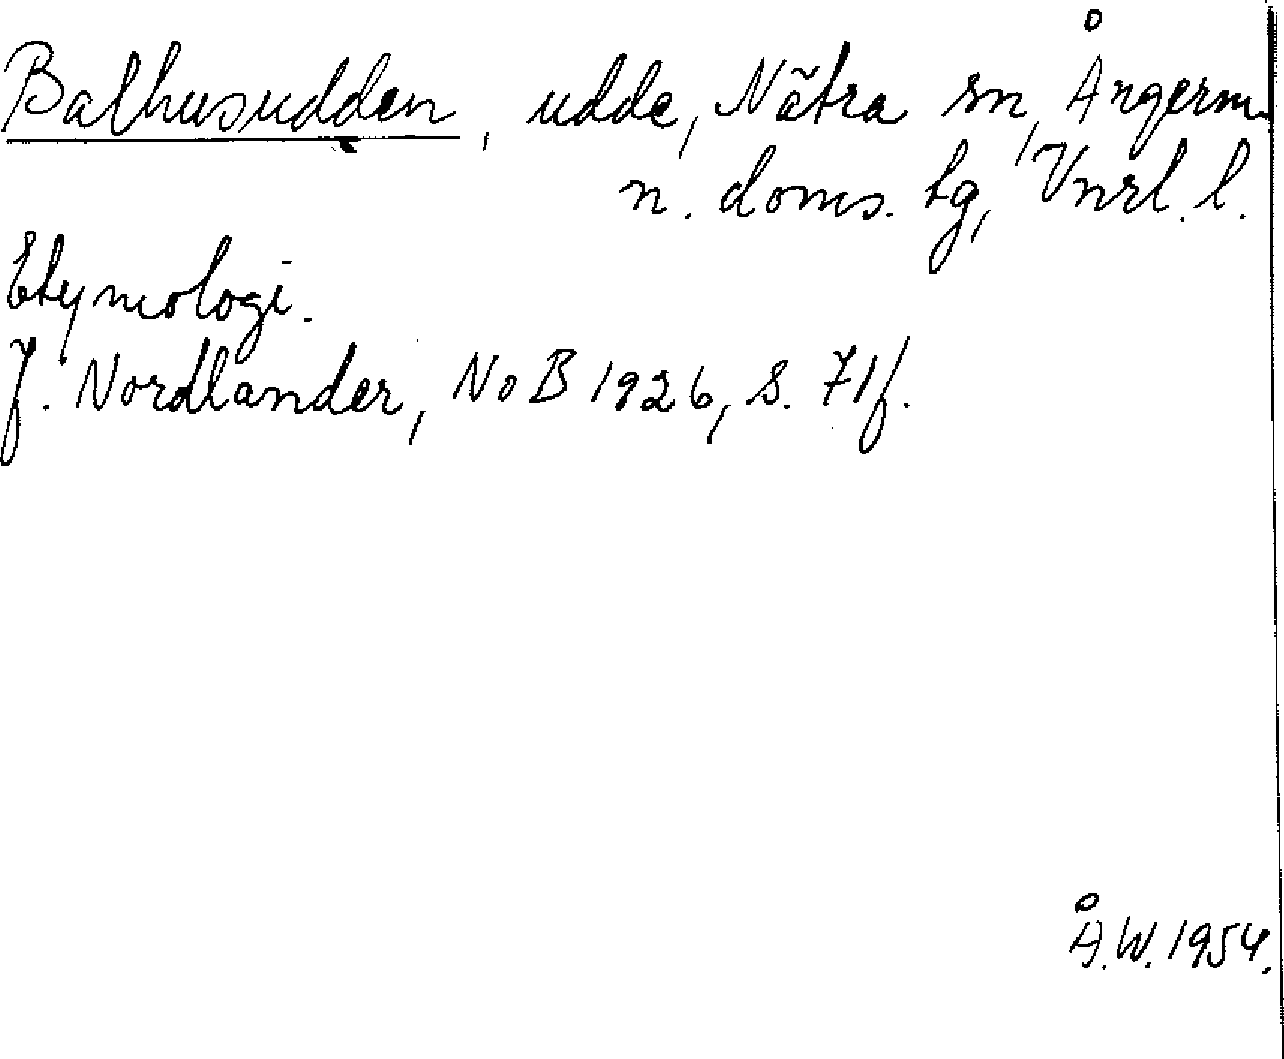 Balhusudden, udde, Nätra sn, Ångerm.
n. doms. tg, Vnrl. l.
Etymologi.
J. Nordlander, NoB 1926, s. 71f.
Å.W. 1954.